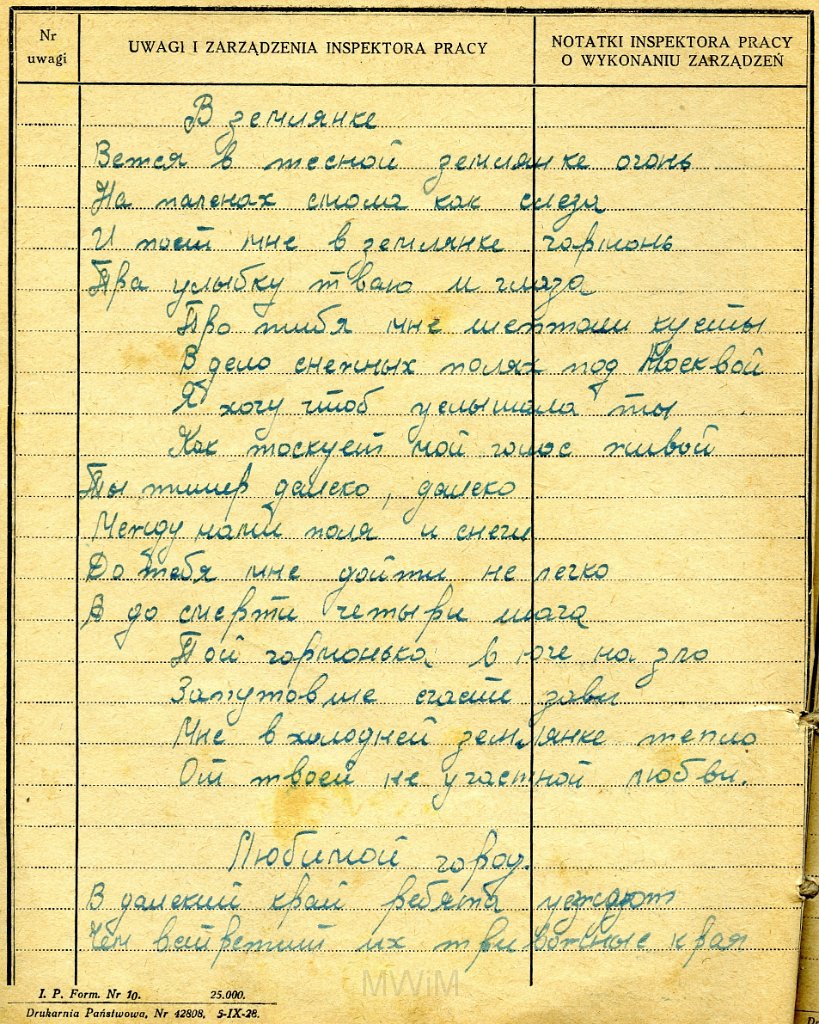 Nr uwagi
UWAGI I ZARZĄDZENIA INSPEKTORA PRACY
NOTATKI INSPEKTORA PRACY
O WYKONANIU ZARZĄDZEŃ
В землянке
Вется в тесной землянке огонь
На паленах смола как слеза
И поет мне в землянке гармонь
Пра улыбку тваю и глаза
Про тибя мне шептали кусты
В дело снежных полях под Москвой
Я хочу чтоб услышала ты
Как тоскует мой голос живой
Ты типер далеко, далеко
Между нами поля и снеги
До тебя мне дойти не легко
А до смерти четыри шага
Пой гармонька в юге на зло
счасте зави
Мне в холодней землянке тепло
От твоей не угастной любви.
Любимой город.
В далекий край ребята
их край
MWiM
I. P. Form. Nr 10. 25.000.
Drukarnia Państwowa, Nr 42808, 5-IX-28.